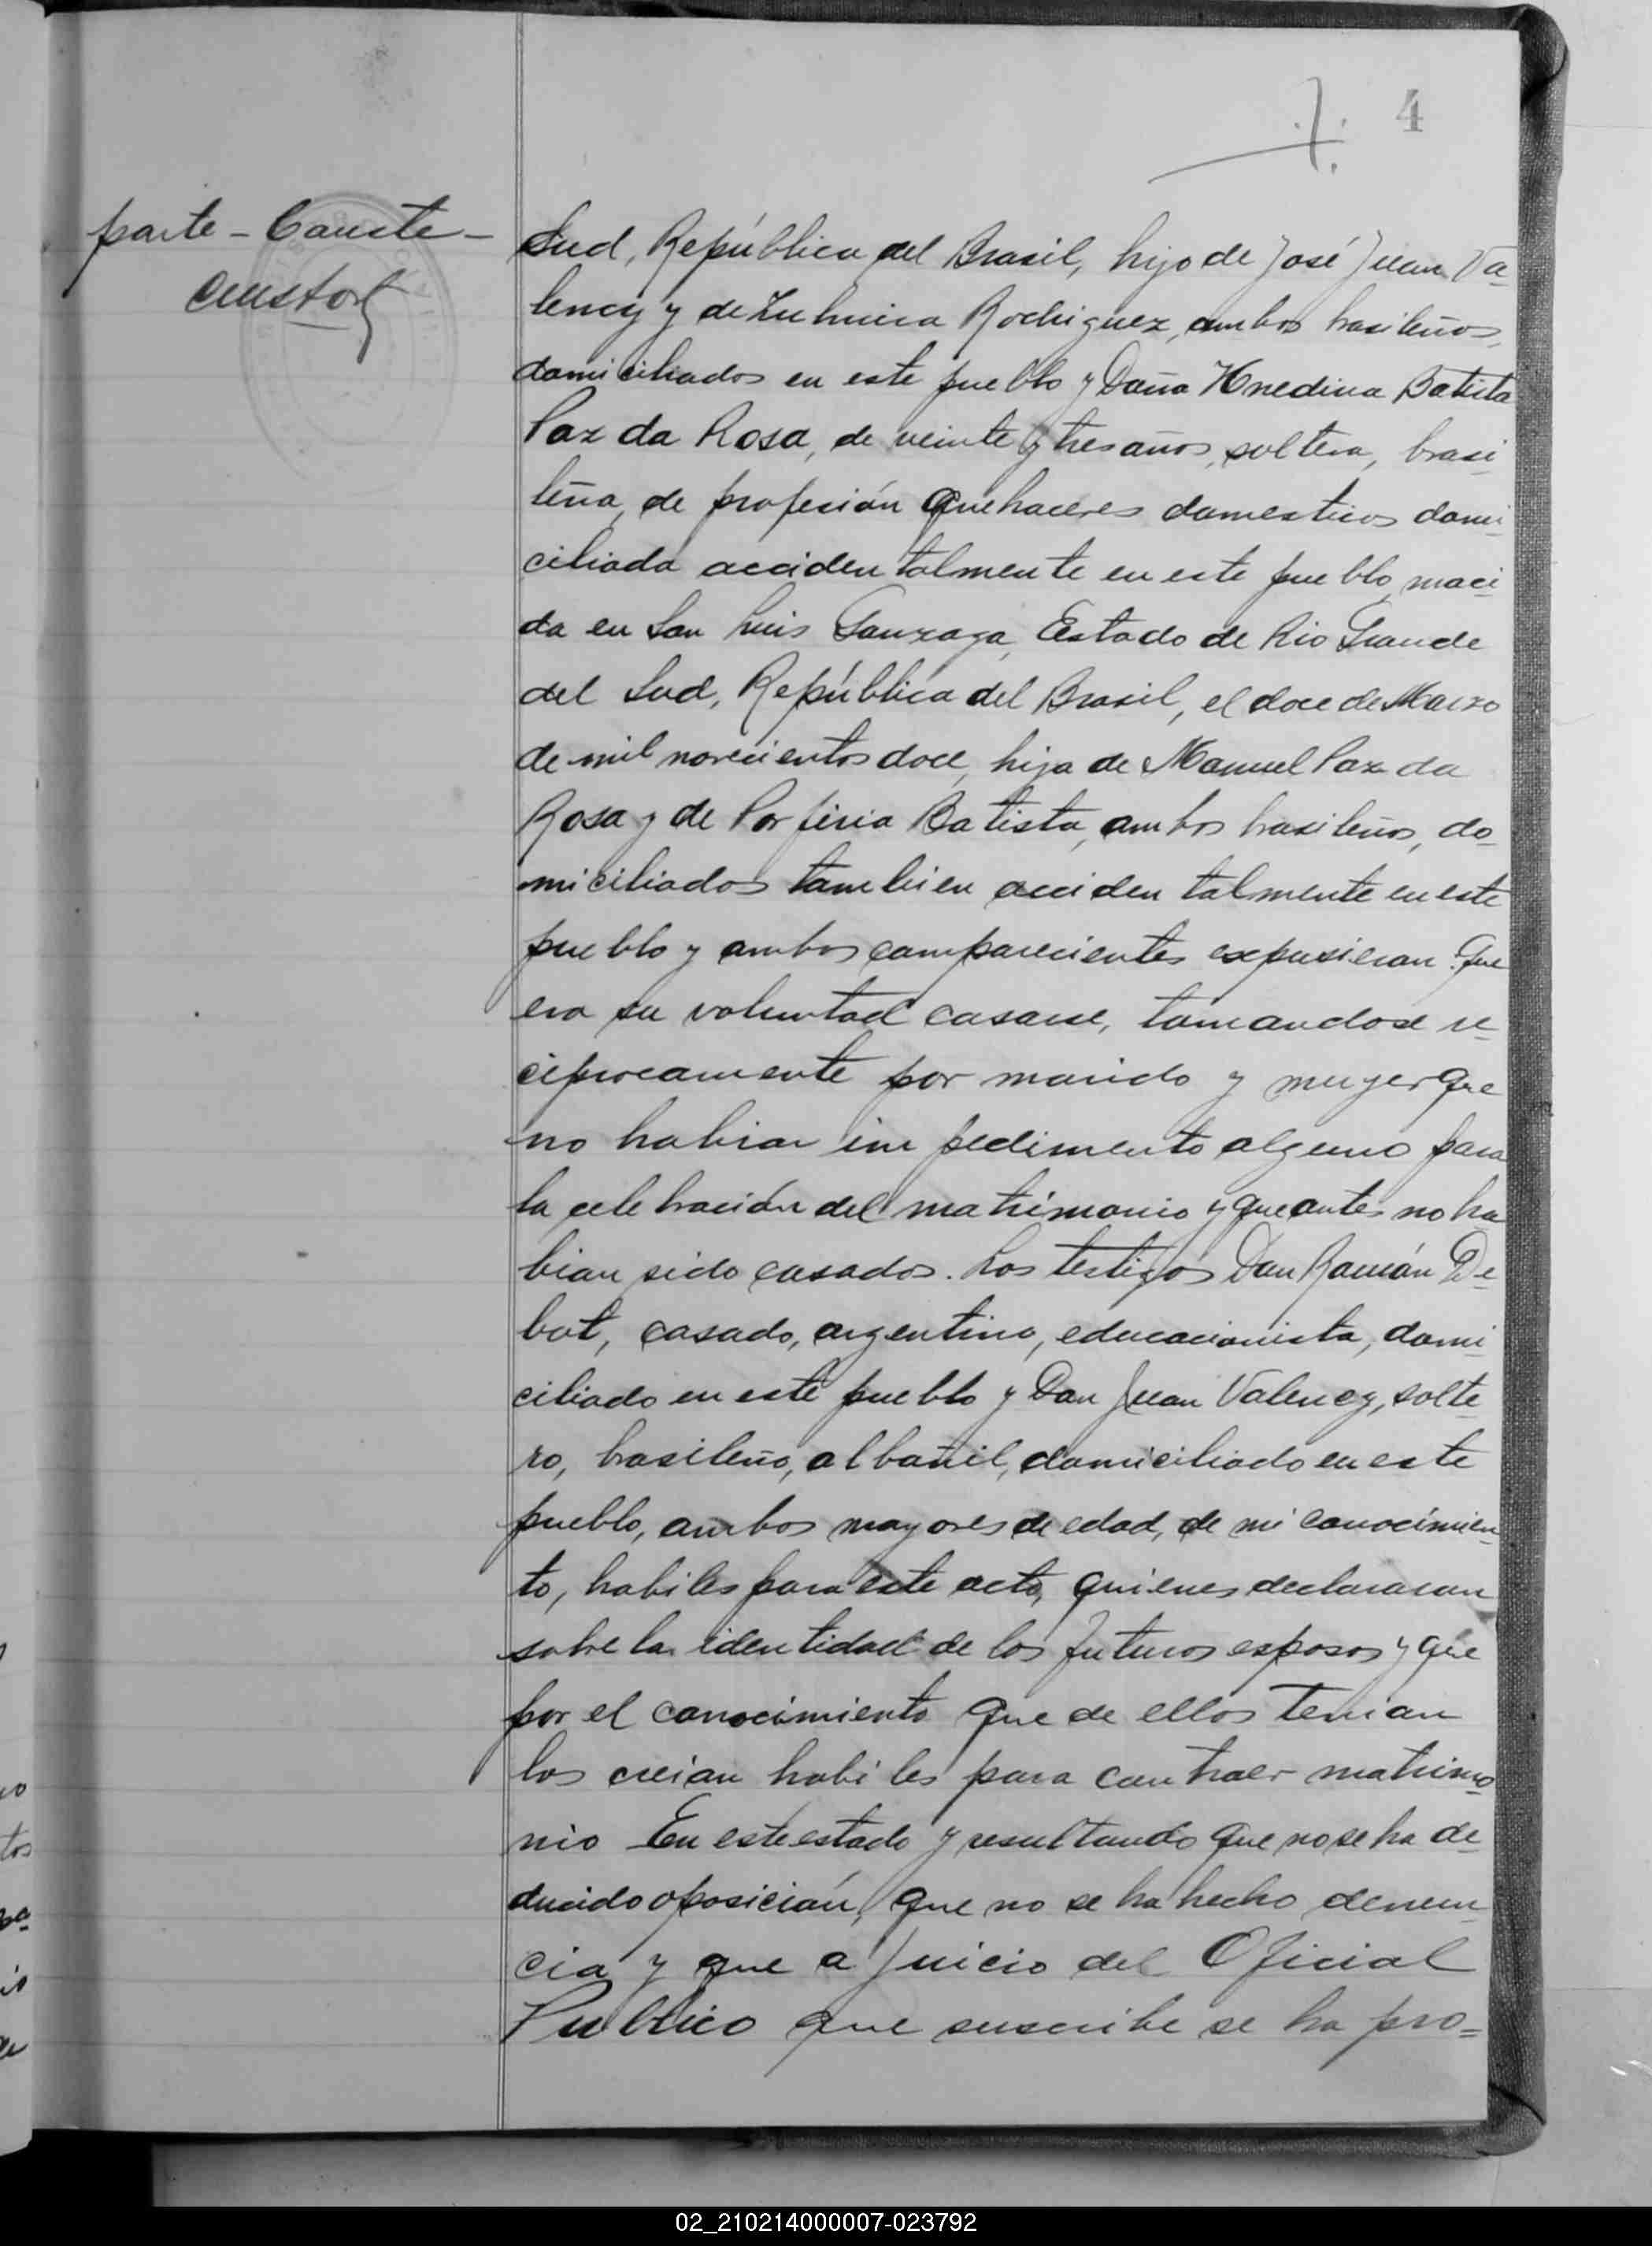 4
parte - Conste -
Sud, República del Brasil, hijo de José Juan Va-
lency y de Zulmira Rodriguez, ambos brasileños,
domiciliados en este pueblo y Doña Onedina Batista
Paz da Rosa, de veinte y tres años, soltera, brasi-
leña, de profesión quehaceres domesticos domi-
ciliada accidentalmente en este pueblo, naci-
da en San Luis Gonzaga, Estado de Rio Grande
del Sud, República del Brasil, el doce de Marzo
de mil novecientos doce, hija de Manuel Paz da
Rosa y de Porfiria Batista, ambos brasileños, do-
miciliados tambien accidentalmente en este
pueblo y ambos comparecientes expusieron: que
era su voluntad casarse, tomandose re-
ciprocamente por marido y mujer que
no habian impedimento alguno para
la celebración del matrimonio y que antes no ha
bian sido casados. Los testigos Don Ramón De-
bat, casado, argentino, educacionista, domi-
ciliado en este pueblo y Don Juan Valency, solte-
ro, brasileño, albañil, domiciliado en este
pueblo, ambos mayores de edad, de mi conocimien-
to, habiles para este acto, quienes declararon
sobre la identidad de los futuros esposos y que
por el conocimiento que de ellos tenian
los creian habiles para contraer matrimo-
nio En este estado y resultando que no se ha de-
ducido oposición, que no se ha hecho denun-
cia y que a juicio del Oficial
Publico que suscribe se ha pro-
02_210214000007-023792